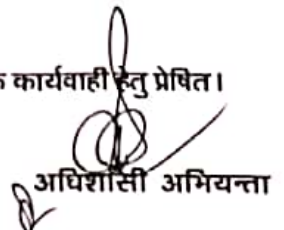 कार्यवाही हेतु प्रेषित।
अधिशासी अभियन्ता